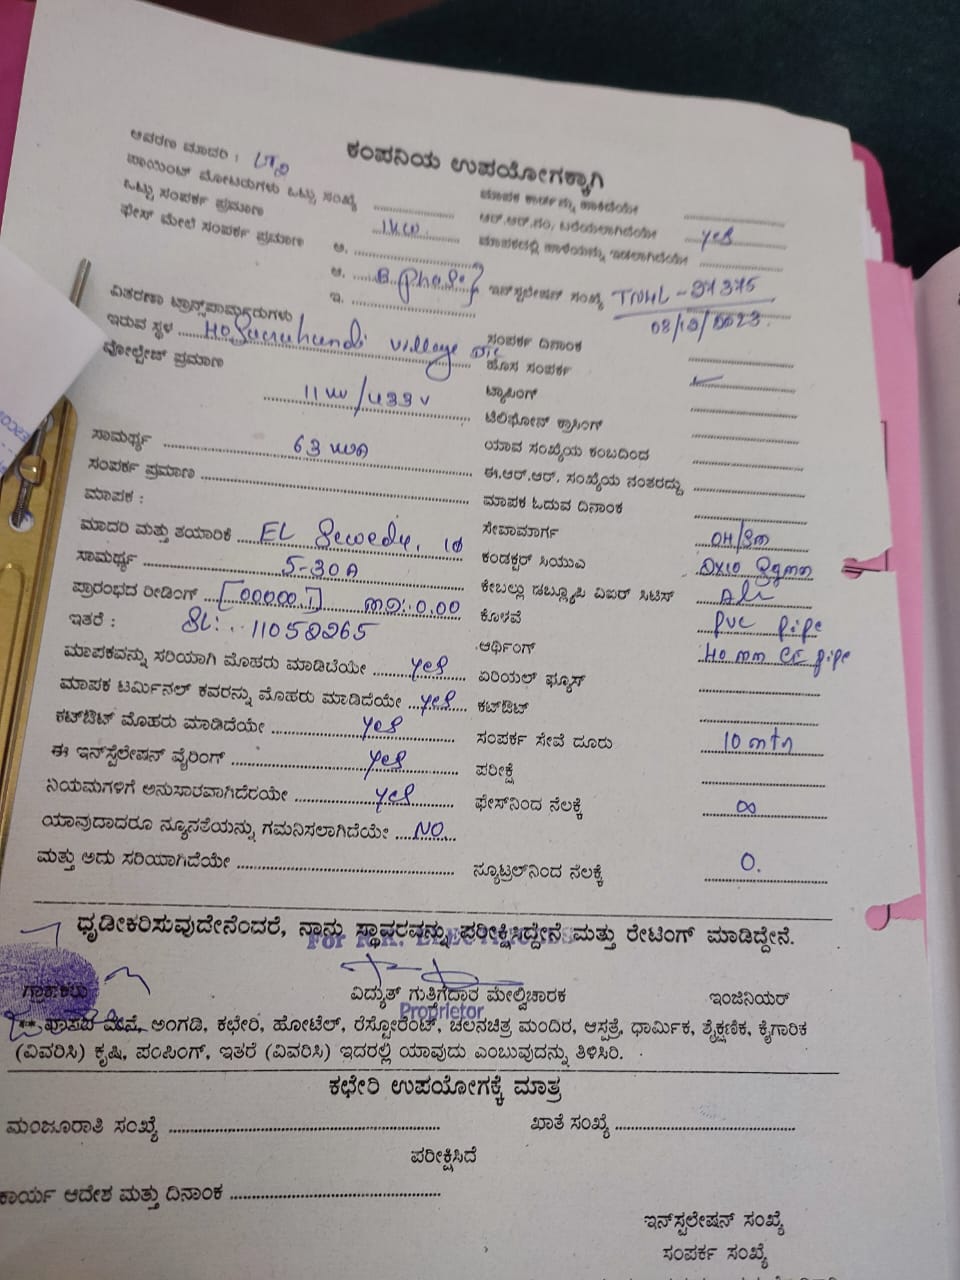 ಕಂಪನಿಯ ಉಪಯೋಗಕ್ಕಾಗಿ
ಆವರಣ ಮಾದರಿ :
ಪಾಯಿಂಟ್ ಮೋಟರುಗಳು ಒಟ್ಟು ಸಂಖ್ಯೆ
ಒಟ್ಟು ಸಂಪರ್ಕ ಪ್ರಮಾಣ 1KW
ಆರ್.ಆರ್.ನಂ. ಬರೆಯಲಾಗಿದೆಯೇ yes
ಫೇಸ್ ಮೇಲೆ ಸಂಪರ್ಕ ಪ್ರಮಾಣ ಅ.
ಆ. B. phase
ಇನ್‌ಸ್ಟಲೇಷನ್ ಸಂಖ್ಯೆ TNHL-
ಇ.
ವಿತರಣಾ ಟ್ರಾನ್ಸ್‌ಫಾರ್ಮರುಗಳು
ಇರುವ ಸ್ಥಳ village
ಸಂಪರ್ಕ ದಿನಾಂಕ
ಹೊಸ ಸಂಪರ್ಕ
ವೋಲ್ಟೇಜ್ ಪ್ರಮಾಣ 11 KV/433V
ಟ್ಯಾಪಿಂಗ್
ಟೆಲಿಫೋನ್ ಕ್ರಾಸಿಂಗ್
ಸಾಮರ್ಥ್ಯ 63 KVA
ಯಾವ ಸಂಖ್ಯೆಯ ಕಂಬದಿಂದ
ಸಂಪರ್ಕ ಪ್ರಮಾಣ
ಈ.ಆರ್.ಆರ್. ಸಂಖ್ಯೆಯ ನಂತರದ್ದು
ಮಾಪಕ :
ಮಾಪಕ ಓದುವ ದಿನಾಂಕ
ಮಾದರಿ ಮತ್ತು ತಯಾರಿಕೆ EL Sewedy, 1ф
ಸೇವಾಮಾರ್ಗ OH/Sm
ಸಾಮರ್ಥ್ಯ 5-30A
ಕಂಡಕ್ಟರ್ ಸಿಯುವಿ 2x10 Sqmm
ಪ್ರಾರಂಭದ ರೀಡಿಂಗ್ [00000.1] MD:.0.00
ಕೇಬಲ್ಲು ಡಬ್ಲ್ಯೂಪಿ ವಿಐಆರ್ ಸಿಟಿಸ್
ಇತರೆ : SL:. 11052265
ಕೊಳವೆ pvc pipe
ಆರ್ಥಿಂಗ್ 40 mm pipe
ಮಾಪಕವನ್ನು ಸರಿಯಾಗಿ ಮೊಹರು ಮಾಡಿದೆಯೇ yes
ಏರಿಯಲ್ ಫ್ಯೂಸ್
ಮಾಪಕ ಟರ್ಮಿನಲ್ ಕವರನ್ನು ಮೊಹರು ಮಾಡಿದೆಯೇ yes
ಕಟ್‌ಔಟ್
ಕಟ್‌ಔಟ್ ಮೊಹರು ಮಾಡಿದೆಯೇ yes
ಸಂಪರ್ಕ ಸೇವೆ ದೂರು 10 mtr
ಈ ಇನ್‌ಸ್ಟಲೇಷನ್ ವೈರಿಂಗ್ yes
ಪರೀಕ್ಷೆ
ನಿಯಮಗಳಿಗೆ ಅನುಸಾರವಾಗಿದೆರಯೇ yes
ಫೇಸ್‌ನಿಂದ ನೆಲಕ್ಕೆ ∞
ಯಾವುದಾದರೂ ನ್ಯೂನತೆಯನ್ನು ಗಮನಿಸಲಾಗಿದೆಯೇ NO
ಮತ್ತು ಅದು ಸರಿಯಾಗಿದೆಯೇ
ನ್ಯೂಟ್ರಲ್‌ನಿಂದ ನೆಲಕ್ಕೆ 0.
ಧೃಡೀಕರಿಸುವುದೇನೆಂದರೆ, ನಾನು ಸ್ಥಾವರವನ್ನು ಪರೀಕ್ಷಿಸಿದ್ದೇನೆ ಮತ್ತು ರೇಟಿಂಗ್ ಮಾಡಿದ್ದೇನೆ.
ಗ್ರಾಹಕರು ವಿದ್ಯುತ್ ಗುತ್ತಿಗೆದಾರ ಮೇಲ್ವಿಚಾರಕ ಇಂಜಿನಿಯರ್
Proprietor
ಮನೆ, ಅಂಗಡಿ, ಕಛೇರಿ, ಹೋಟೆಲ್, ರೆಸ್ಟೋರೆಂಟ್, ಚಲನಚಿತ್ರ ಮಂದಿರ, ಆಸ್ಪತ್ರೆ, ಧಾರ್ಮಿಕ, ಶೈಕ್ಷಣಿಕ, ಕೈಗಾರಿಕ
(ವಿವರಿಸಿ) ಕೃಷಿ, ಪಂಪಿಂಗ್, ಇತರೆ (ವಿವರಿಸಿ) ಇದರಲ್ಲಿ ಯಾವುದು ಎಂಬುವುದನ್ನು ತಿಳಿಸಿರಿ.
ಕಛೇರಿ ಉಪಯೋಗಕ್ಕೆ ಮಾತ್ರ
ಮಂಜೂರಾತಿ ಸಂಖ್ಯೆ ಖಾತೆ ಸಂಖ್ಯೆ
ಪರೀಕ್ಷಿಸಿದೆ
ಕಾರ್ಯ ಆದೇಶ ಮತ್ತು ದಿನಾಂಕ
ಇನ್‌ಸ್ಟಲೇಷನ್ ಸಂಖ್ಯೆ
ಸಂಪರ್ಕ ಸಂಖ್ಯೆ